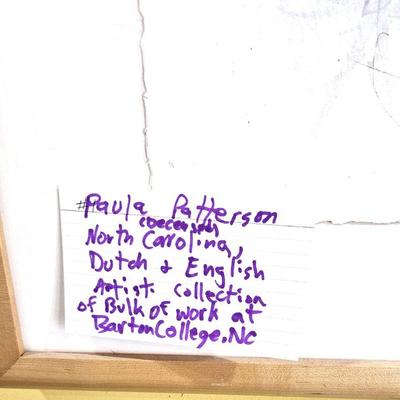 #Paula Patterson
North Carolina,
Dutch & English
Artist collection
of Bulk of work at
Barton College, NC